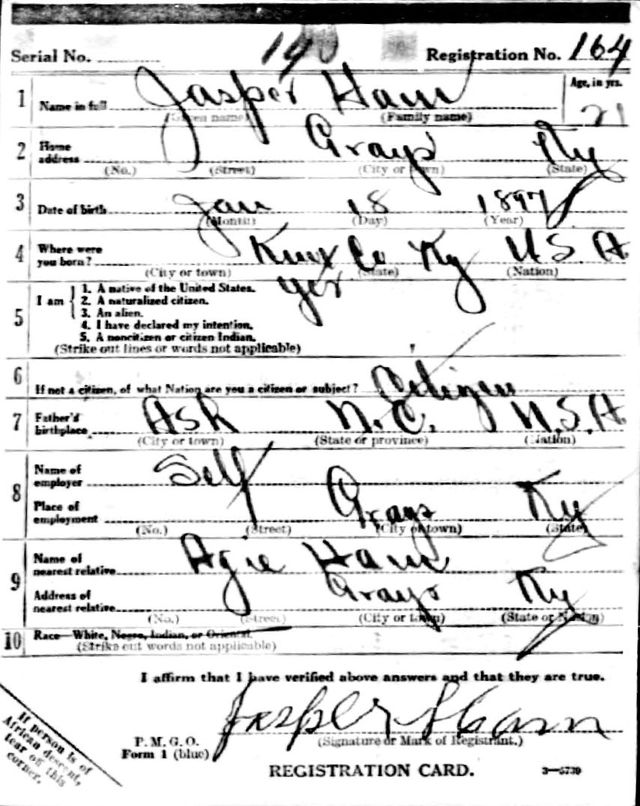 Serial No. 140 Registration No. 164
1 Name in full Jasper Ham Age, in yrs.
(Given name) (Family name) 21
2 Home address Grays Ky
(No.) (Street) (City or town) (State)
3 Date of birth Jan 18 1897
(Month) (Day) (Year)
4 Where were you born? Knox Co Ky U S A
(City or town) (State) (Nation)
yes
5 I am
1. A native of the United States.
2. A naturalized citizen.
3. An alien.
4. I have declared my intention.
5. A noncitizen or citizen Indian.
(Strike out lines or words not applicable)
6 If not a citizen, of what Nation are you a citizen or subject? Citizen
7 Father's birthplace Ash N.C. U.S.A
(City or town) (State or province) (Nation)
8 Name of employer Self
Place of employment Grays Ky
(No.) (Street) (City or town) (State)
9 Name of nearest relative Agie Ham
Address of nearest relative Grays Ky
(No.) (Street) (City or town) (State or Nation)
10 Race—White, Negro, Indian, or Oriental
(Strike out words not applicable)
I affirm that I have verified above answers and that they are true.
Jasper Ham
P. M. G. O. (Signature or Mark of Registrant.)
Form 1 (blue)
REGISTRATION CARD. 3—5739
If person is of
African descent,
tear off this
corner.